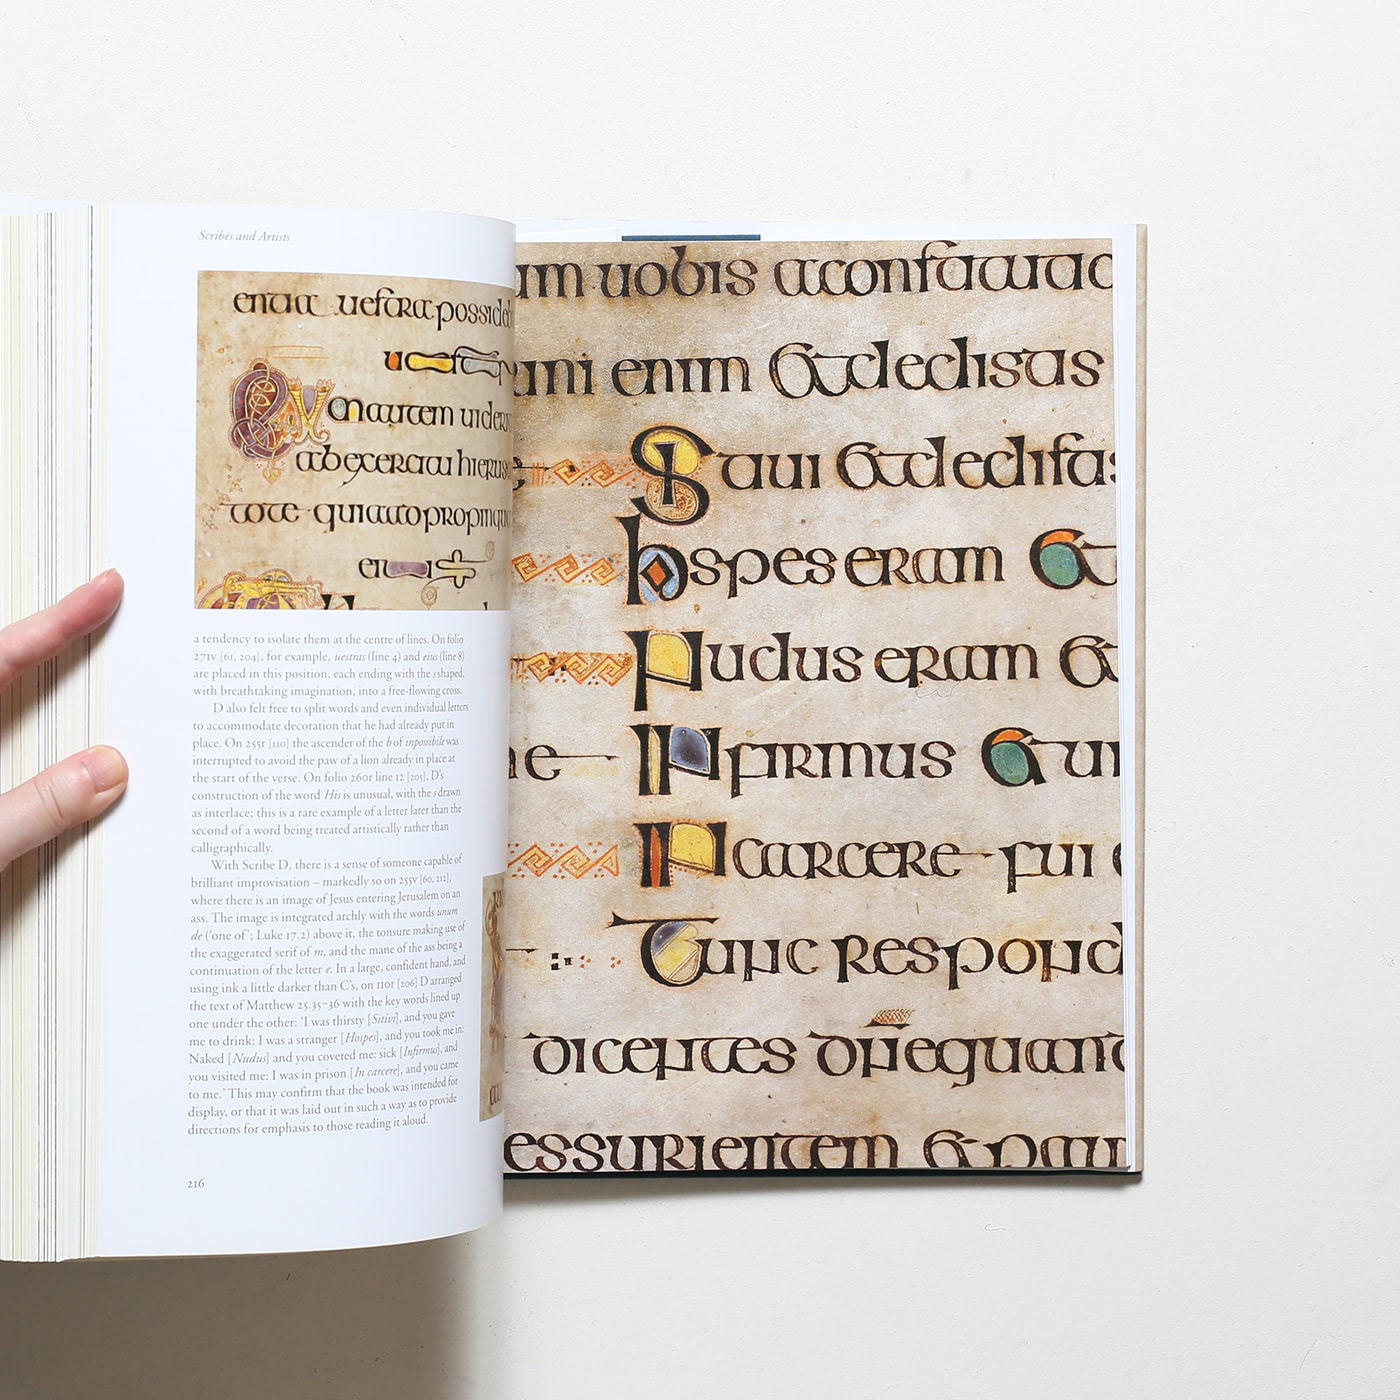 Scribes and Artists
entia uestra possideb
uestr
Cum autem uider
ab exercitu hierus
tote qui autopropinqu
eius
a tendency to isolate them at the centre of lines. On folio
271v [61, 204], for example, uestras (line 4) and eius (line 8)
are placed in this position, each ending with the s shaped,
with breathtaking imagination, into a free-flowing cross.
D also felt free to split words and even individual letters
to accommodate decoration that he had already put in
place. On 255r [110] the ascender of the b of inpossibile was
interrupted to avoid the paw of a lion already in place at
the start of the verse. On folio 260r line 12 [205], D's
construction of the word His is unusual, with the s drawn
as interlace; this is a rare example of a letter later than the
second of a word being treated artistically rather than
calligraphically.
With Scribe D, there is a sense of someone capable of
brilliant improvisation – markedly so on 255v [60, 212],
where there is an image of Jesus entering Jerusalem on an
ass. The image is integrated archly with the words unum
de ('one of'; Luke 17.2) above it, the tonsure making use of
the exaggerated serif of m, and the mane of the ass being a
continuation of the letter e. In a large, confident hand, and
using ink a little darker than C's, on 110r [206] D arranged
the text of Matthew 25.35–36 with the key words lined up
one under the other: 'I was thirsty [Sitivi], and you gave
me to drink: I was a stranger [Hospes], and you took me in:
Naked [Nudus] and you covered me: sick [Infirmus], and
you visited me: I was in prison [In carcere], and you came
to me.' This may confirm that the book was intended for
display, or that it was laid out in such a way as to provide
directions for emphasis to those reading it aloud.
216
um uobis aconstitutio
uni enim & dedistis
Sitiui & dedistis
hospes eram &
Nudus eram &
ne Infirmus & ui
In carcere fui
Tunc respond
dicentes dne quan
essurientem & pau